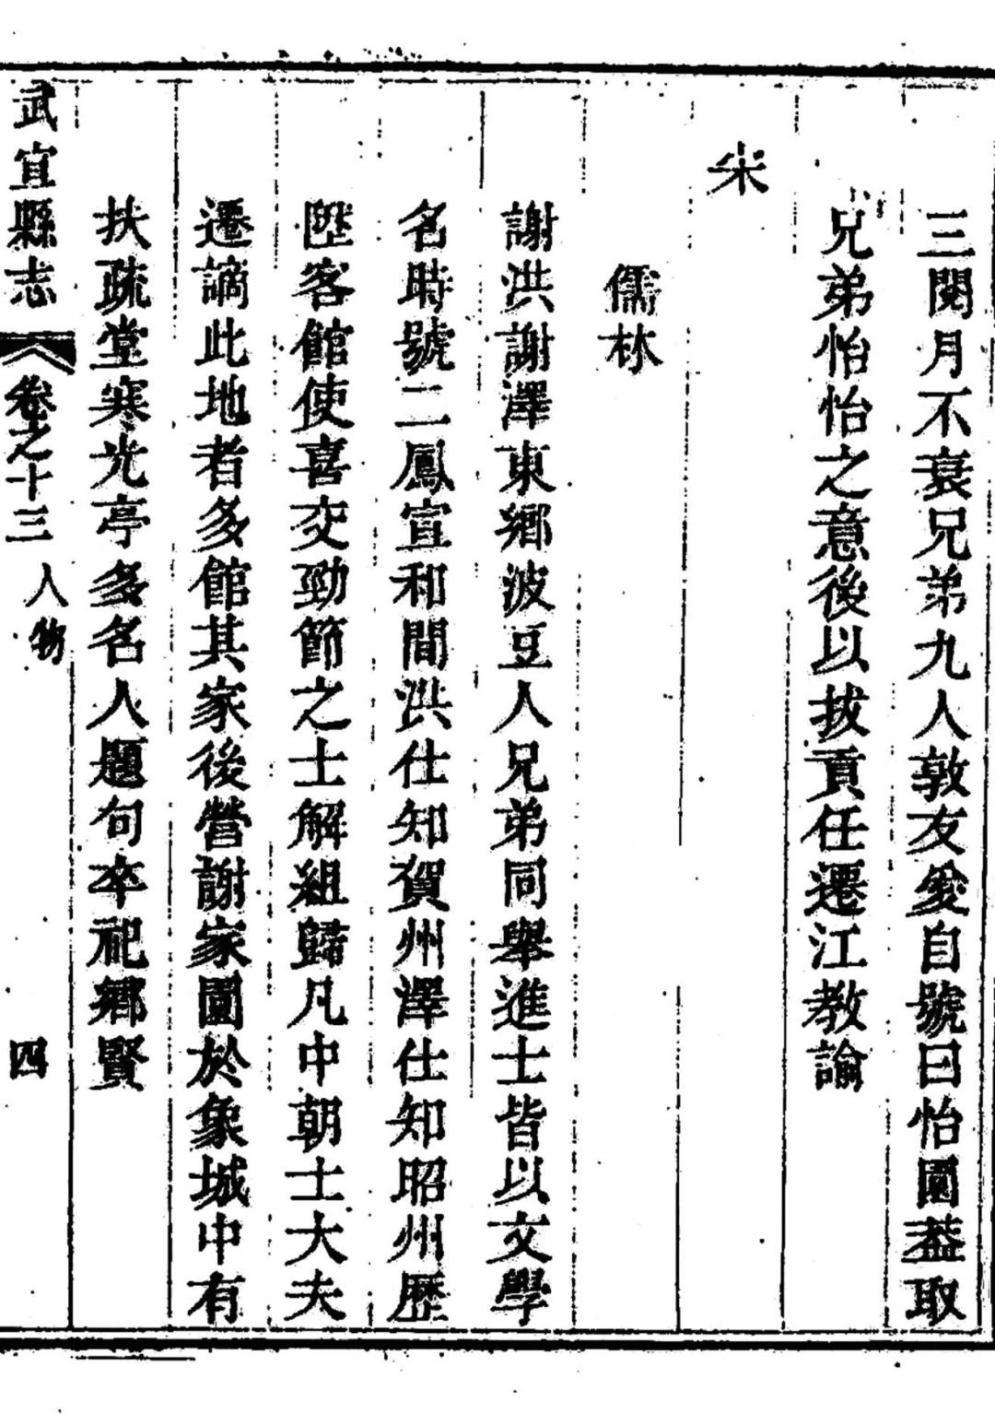 三閱月不衰兄弟九人敦友愛自號曰怡園蓋取
兄弟怡怡之意後以拔貢任遷江教諭
宋
儒林
謝洪謝澤東鄉波豆人兄弟同舉進士皆以文學
名時號二鳳宣和間洪仕知賀州澤仕知昭州歷
陞客館使喜交勁節之士解組歸凡中朝士大夫
遷謫此地者多館其家後營謝家園於象城中有
扶疏堂寒光亭多名人題句卒祀鄉賢
武宣縣志 卷之十三 人物 四